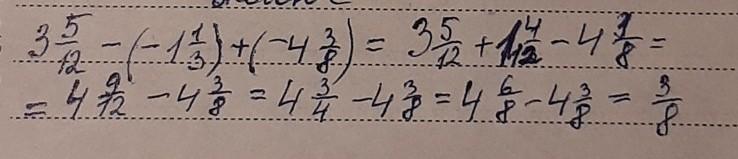 3 5/12 - (-1 1/3) + (-4 3/8) = 3 5/12 + 1 4/12 - 4 3/8 =
= 4 9/12 - 4 3/8 = 4 3/4 - 4 3/8 = 4 6/8 - 4 3/8 = 3/8